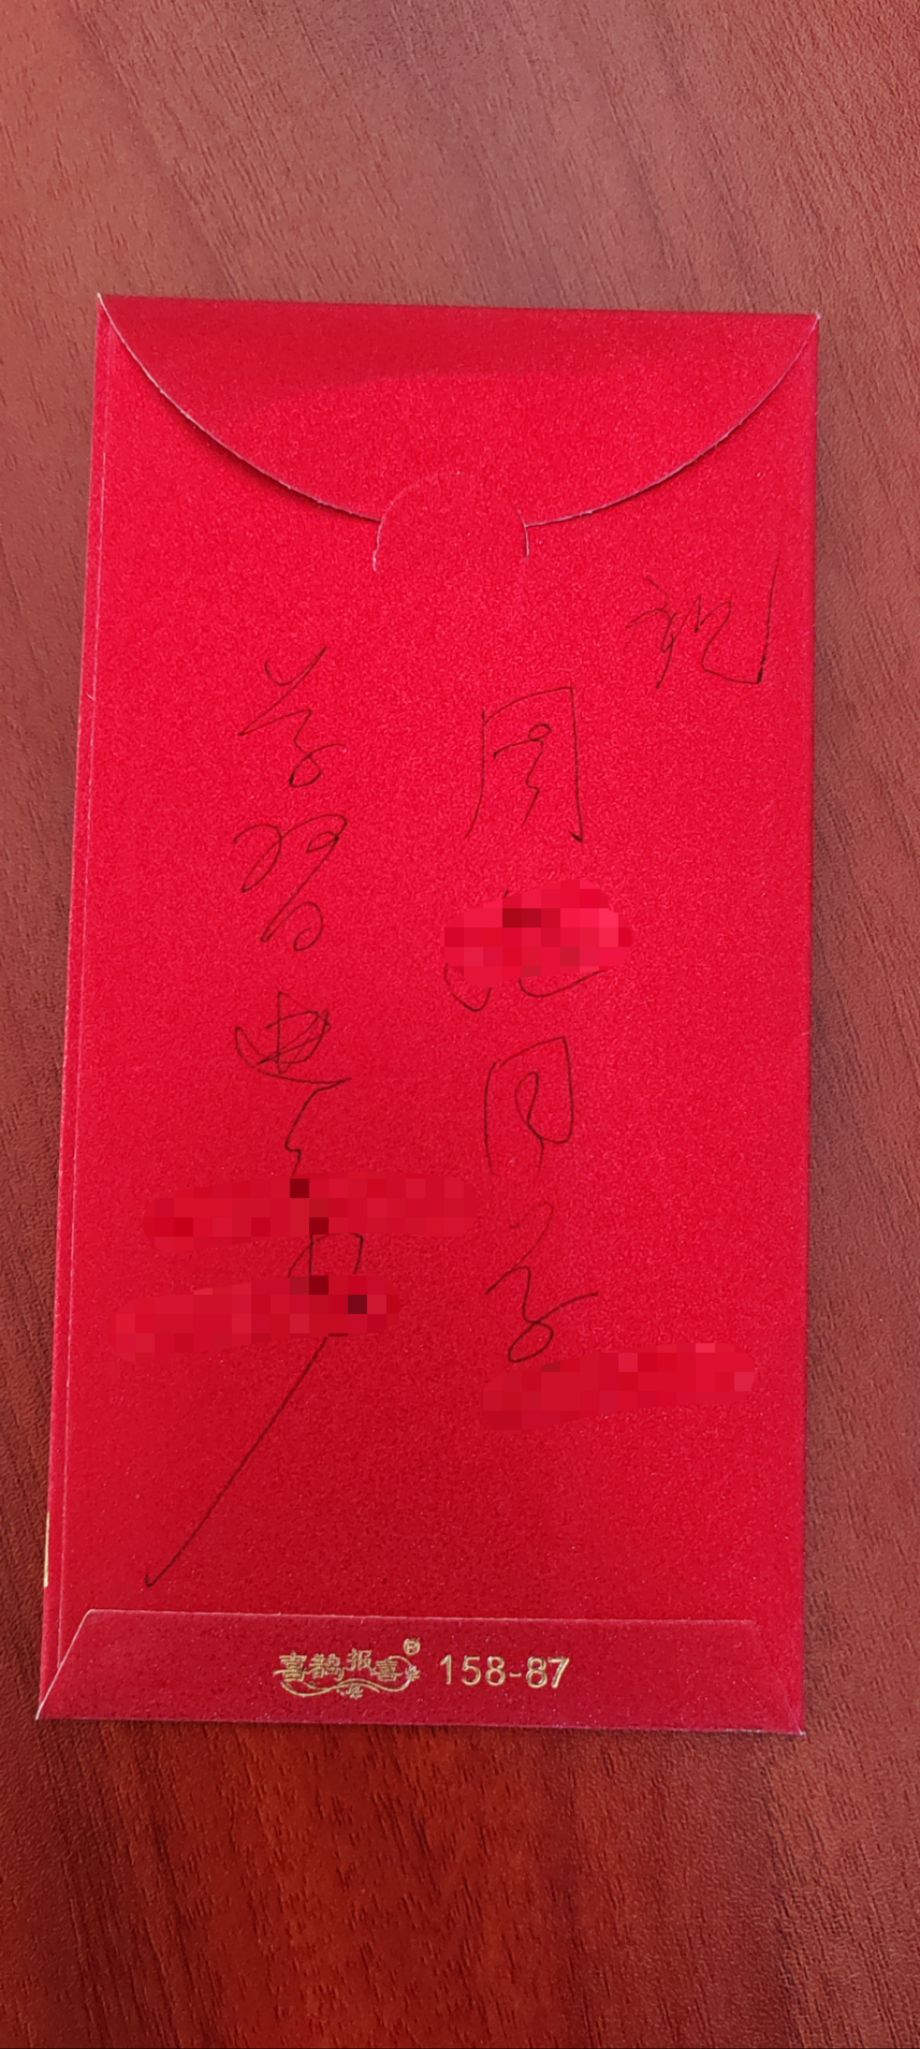 祝
周
同学
学习进步
喜鹊报喜® 158-87